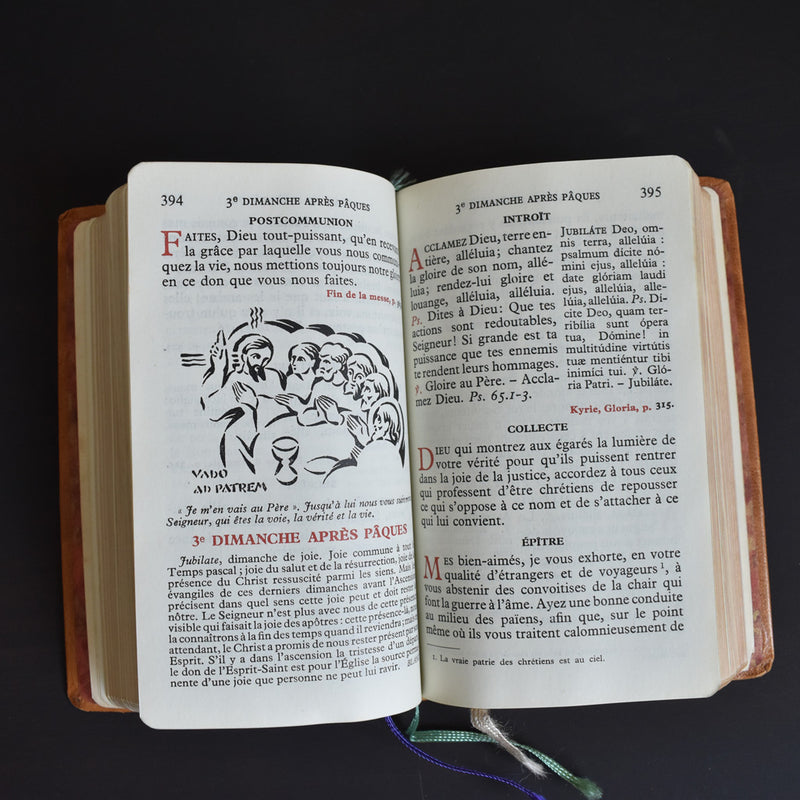 394
3e DIMANCHE APRÈS PÂQUES
POSTCOMMUNION
FAITES, Dieu tout-puissant, qu'en recevant
la grâce par laquelle vous nous communi-
quez la vie, nous mettions toujours notre gloire
en ce don que vous nous faites.
Fin de la messe, p.
VADO
AD PATREM
« Je m'en vais au Père ». Jusqu'à lui nous vous suivrons
Seigneur, qui êtes la voie, la vérité et la vie.
3e DIMANCHE APRÈS PÂQUES
Jubilate, dimanche de joie. Joie commune à tout
Temps pascal ; joie du salut et de la résurrection, joie de
présence du Christ ressuscité parmi les siens. Mais
évangiles de ces derniers dimanches avant l'Ascension
précisent dans quel sens cette joie peut et doit rester
nôtre. Le Seigneur n'est plus avec nous de cette présence
visible qui faisait la joie des apôtres : cette présence-là, nous
la connaîtrons à la fin des temps quand il reviendra ; mais
attendant, le Christ a promis de nous rester présent par
Esprit. S'il y a dans l'ascension la tristesse d'un départ
le don de l'Esprit-Saint est pour l'Église la source perma-
nente d'une joie que personne ne peut lui ravir.
3e DIMANCHE APRÈS PÂQUES
395
INTROÏT
ACCLAMEZ Dieu, terre en-
tière, alléluia; chantez
la gloire de son nom, allé-
luia; rendez-lui gloire et
louange, alléluia, alléluia.
Ps. Dites à Dieu: Que tes
actions sont redoutables,
Seigneur! Si grande est ta
puissance que tes ennemis
te rendent leurs hommages.
℣. Gloire au Père. – Accla-
mez Dieu. Ps. 65.1-3.
JUBILÁTE Deo, om-
nis terra, allelúia :
psalmum dícite nó-
mini ejus, allelúia :
date glóriam laudi
ejus, allelúia, alle-
lúia, allelúia. Ps. Dí-
cite Deo, quam ter-
ribília sunt ópera
tua, Dómine! in
multitúdine virtútis
tuæ mentiéntur tibi
inimíci tui. ℣. Gló-
ria Patri. – Jubiláte.
Kyrie, Gloria, p. 315.
COLLECTE
DIEU qui montrez aux égarés la lumière de
votre vérité pour qu'ils puissent rentrer
dans la joie de la justice, accordez à tous ceux
qui professent d'être chrétiens de repousser
ce qui s'oppose à ce nom et de s'attacher à ce
qui lui convient.
ÉPÎTRE
MES bien-aimés, je vous exhorte, en votre
qualité d'étrangers et de voyageurs1, à
vous abstenir des convoitises de la chair qui
font la guerre à l'âme. Ayez une bonne conduite
au milieu des païens, afin que, sur le point
même où ils vous traitent calomnieusement de
1. La vraie patrie des chrétiens est au ciel.